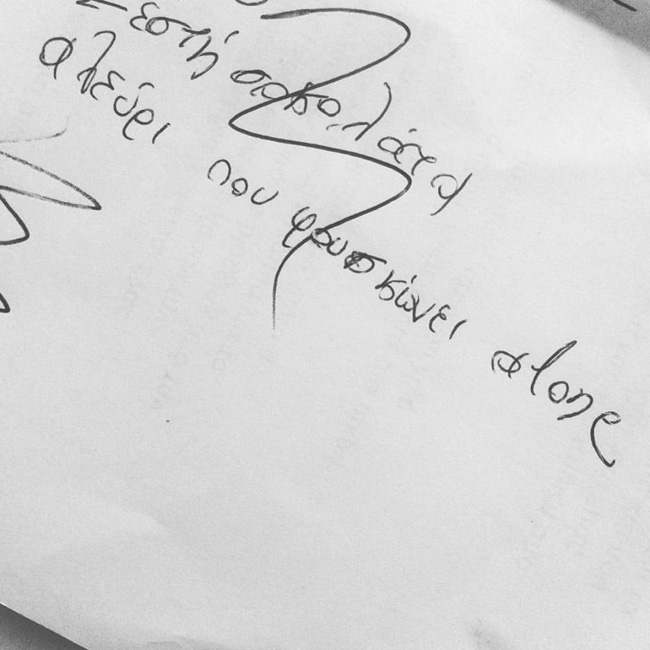 ζεστή σοκολάτα
αλεύρι που φουσκώνει alone